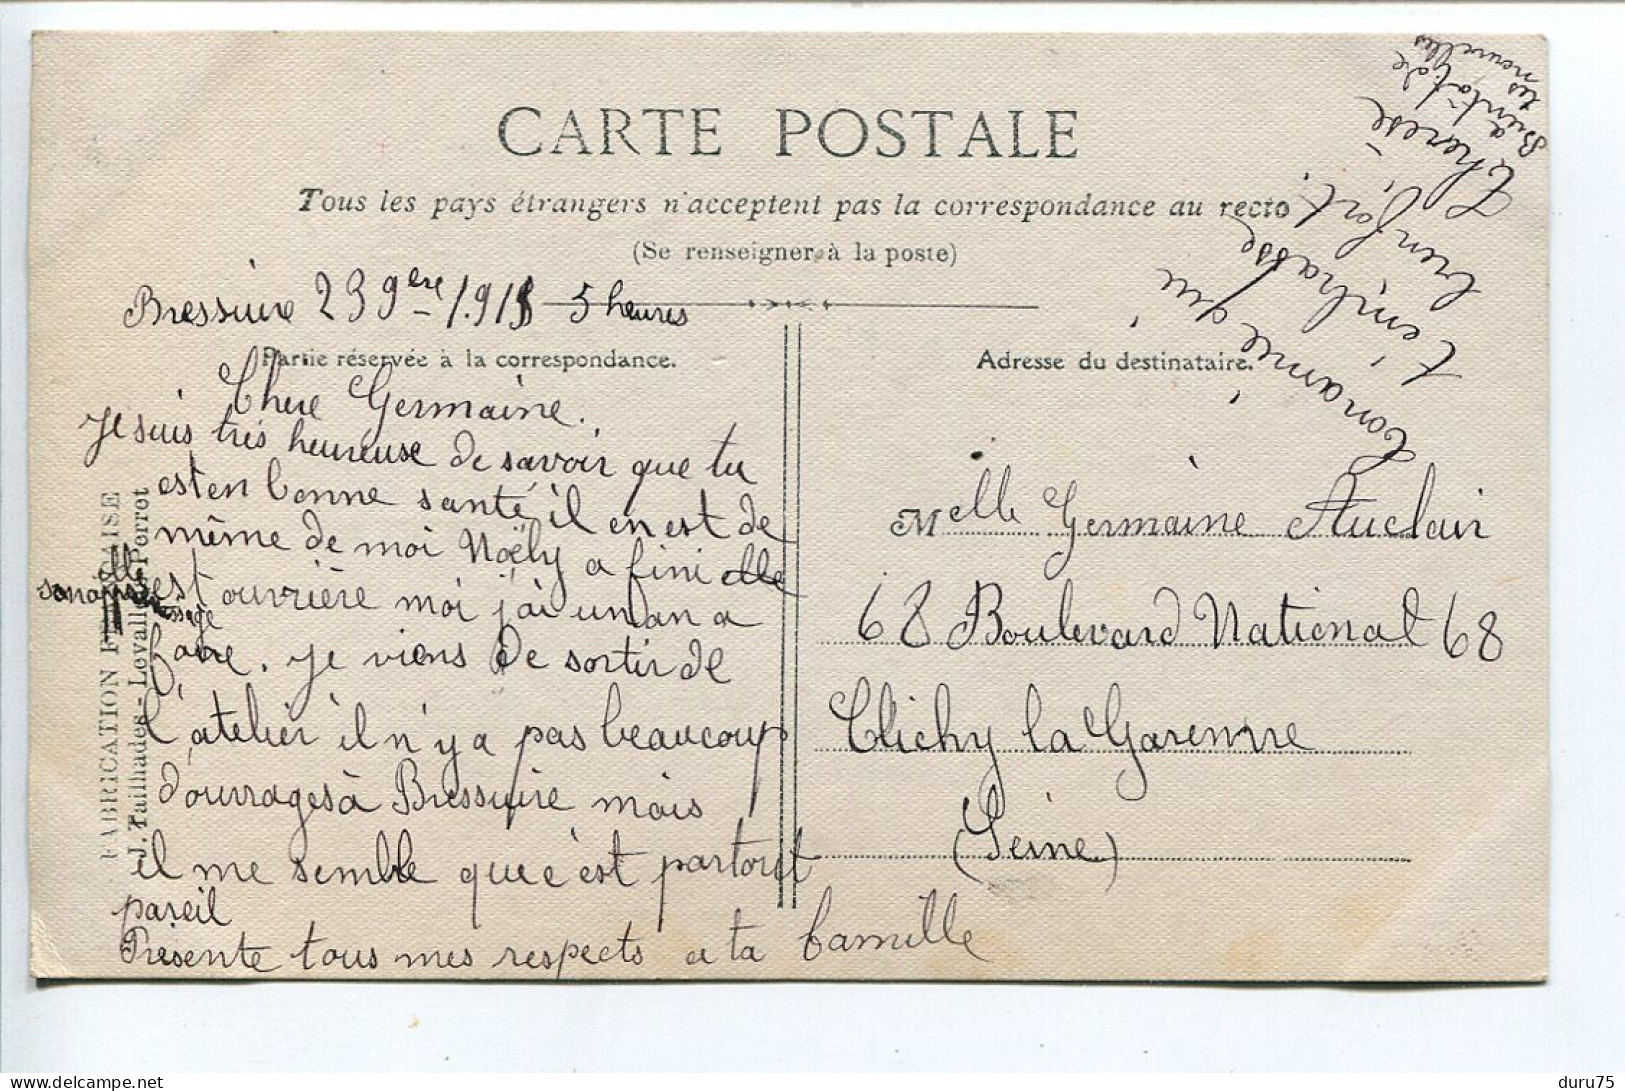 CARTE POSTALE
Tous les pays étrangers n'acceptent pas la correspondance au recto
(Se renseigner à la poste)
Bressuire 23 9bre 1915 5 heures
Partie réservée à la correspondance.
Adresse du destinataire.
Chere Germaine.
Je suis très heureuse de savoir que tu
est en bonne santé, il en est de
même de moi Noëly a fini elle
son apprentissage
est ouvrière moi j'ai un an a
faire. Je viens de sortir de
l'atelier il n'y a pas beaucoup
d'ouvrages à Bressuire mais
il me semble que c'est partout
pareil
Présente tous mes respects a ta famille
Ton amie qui
t'embrasse
bien fort.
Therese
Bientôt de
tes nouvelles
Melle Germaine Auclair
68 Boulevard National 68
Clichy la Garenne
(Seine)
FABRICATION FRANÇAISE
J. Tailhades - Levallois-Perret
delcampe.net
duru75